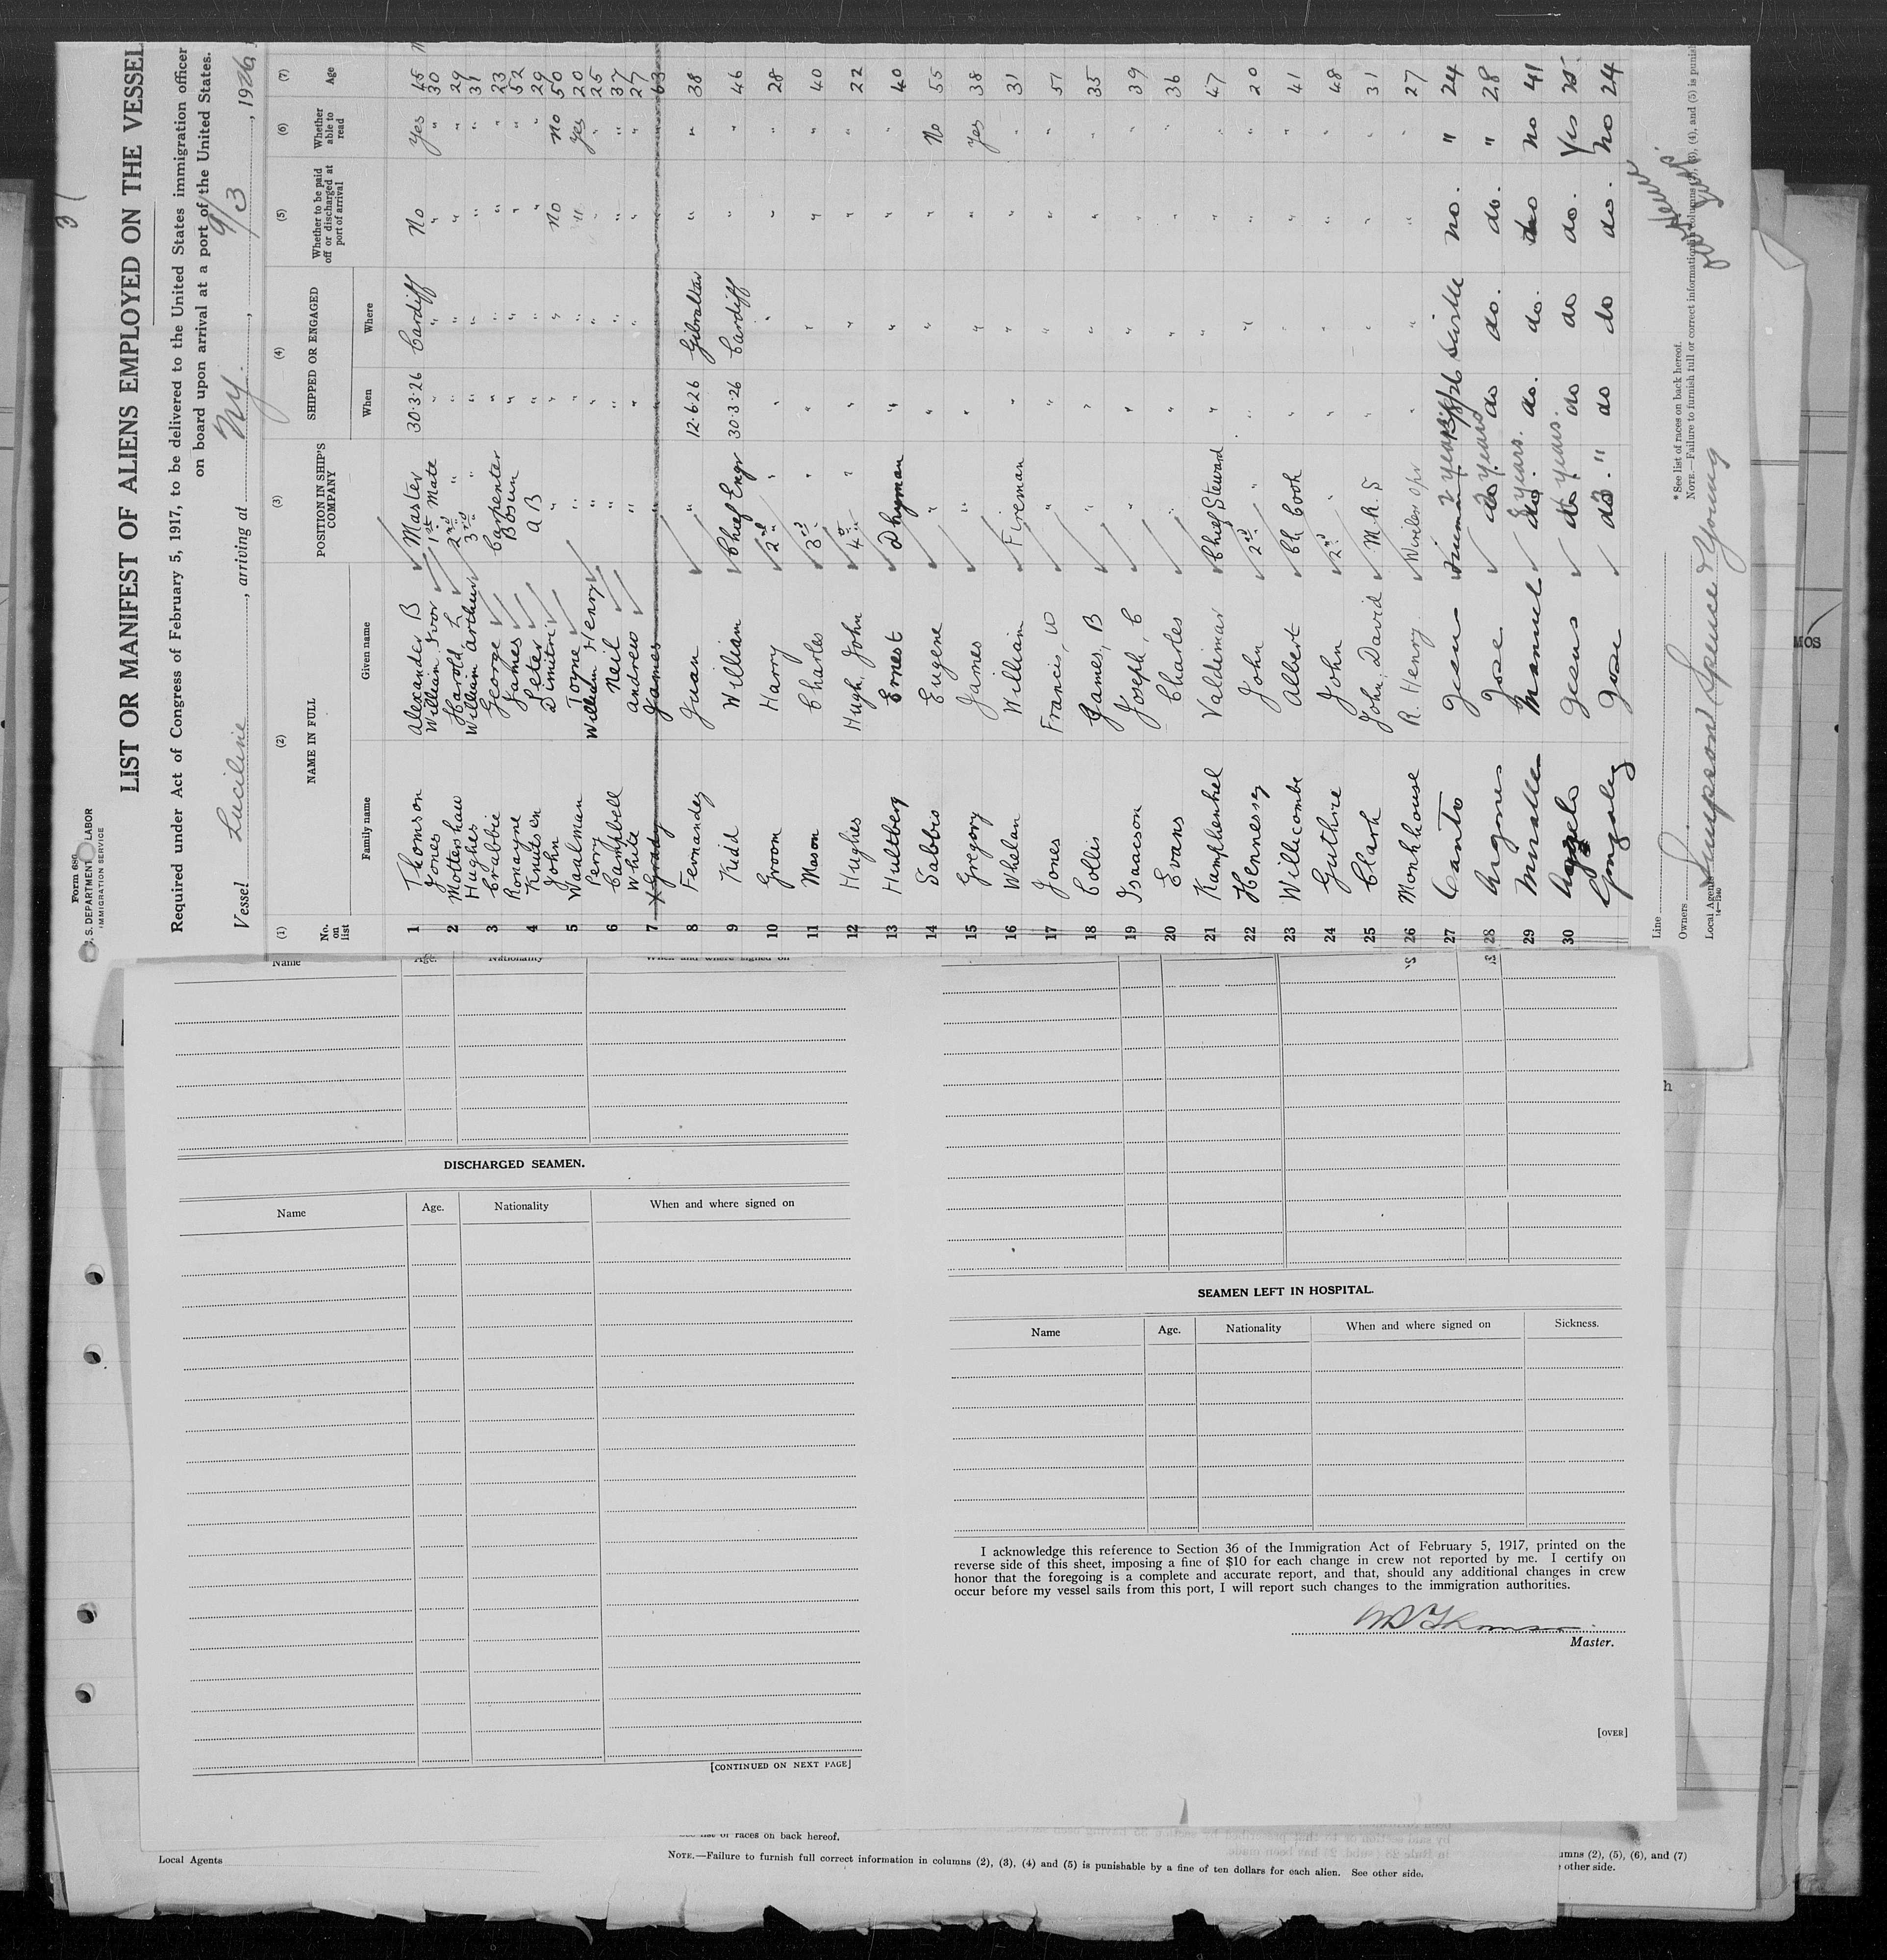 31
Form 689
U. S. DEPARTMENT OF LABOR
IMMIGRATION SERVICE
LIST OR MANIFEST OF ALIENS EMPLOYED ON THE VESSEL
Required under Act of Congress of February 5, 1917, to be delivered to the United States immigration officer
on board upon arrival at a port of the United States.
Vessel Luciline, arriving at NY., 9/3, 1926,
(1) (2) (3) (4) (5) (6) (7)
No. on list NAME IN FULL POSITION IN SHIP'S COMPANY SHIPPED OR ENGAGED Whether to be paid off or discharged at port of arrival Whether able to read Age
Family name Given name When Where
1 Thomson Alexander B Master 30.3.26 Cardiff No Yes 45
Jones William Ivor 1st Mate " " " " 30
2 Mottershaw Harold L 2nd " " " " " 29
Hughes William Arthur 3rd " " " " " 31
3 Crabbie George Carpenter " " " " 23
Ronayne James Bosun " " " " 52
4 Knutson Peter A B " " " " 29
John Dimitri " " " No No 50
5 Waalman Toyne " " " " Yes 20
Perry Wilhelm Henry " " " " " 25
6 Campbell Neil " " " " " 37
White Andrew " " " " " 27
7 Grady James 63
8 Fernandez Juan " 12.6.26 Gibraltar " " 38
9 Kidd William Chief Engr 30.3.26 Cardiff " " 46
10 Groom Harry 2nd " " " " " 28
11 Mason Charles 3rd " " " " " 40
12 Hughes Hugh, John 4th " " " " " 22
13 Hultberg Ernest Dkyman " " " " 40
14 Sabbis Eugene " " " " No 55
15 Gregory James " " " " Yes 38
16 Whelan William Fireman " " " " 31
17 Jones Francis, W " " " " " 51
18 Collis James, B " " " " " 35
19 Isaacson Joseph, C " " " " " 39
20 Evans Charles " " " " " 36
21 Kamphenkel Valdimar Chief Steward " " " " 47
22 Hennessy John 2nd " " " " " 20
23 Willicombe Albert Ch Cook " " " " 41
24 Guthrie John 2nd " " " " " 48
25 Clark John, David M. R. S " " " " 31
26 Monkhouse R. Henry Wireless Opr " " " " 27
27 Canto Jesus Fireman 2 years Seville no. " 24
28 Jose do years do do. do. " 28
29 Manuel do. years. do. do. no 41
30 Jesus do years. do do do. Yes 25
Gonzalez Jose do. " do do do. no 24
Line
Owners
Local Agents Simpson Spence & Young
* See list of races on back hereof.
NOTE.—Failure to furnish full or correct information in columns (2), (3), (4), and (5) is punish
Name Age. Nationality When and where signed on
DISCHARGED SEAMEN.
Name Age. Nationality When and where signed on
[CONTINUED ON NEXT PAGE]
SEAMEN LEFT IN HOSPITAL.
Name Age. Nationality When and where signed on Sickness.
I acknowledge this reference to Section 36 of the Immigration Act of February 5, 1917, printed on the
reverse side of this sheet, imposing a fine of $10 for each change in crew not reported by me. I certify on
honor that the foregoing is a complete and accurate report, and that, should any additional changes in crew
occur before my vessel sails from this port, I will report such changes to the immigration authorities.
Thomson
Master.
[OVER]
See list of races on back hereof.
Local Agents
NOTE.—Failure to furnish full correct information in columns (2), (3), (4) and (5) is punishable by a fine of ten dollars for each alien. See other side.
umns (2), (5), (6), and (7)
other side.